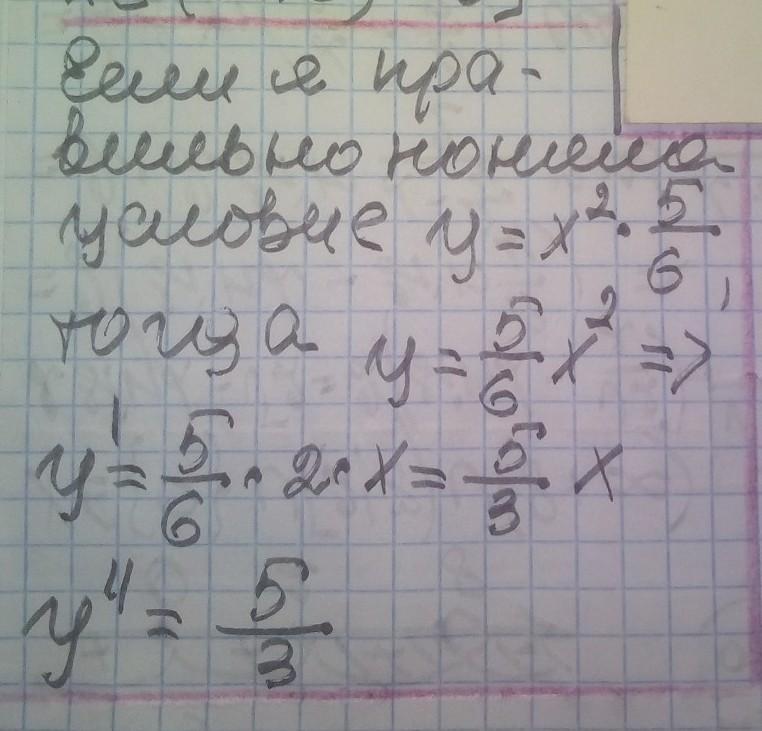 Если я пра-
вильно поняла
условие y = x² · 5/6,
тогда y = 5/6 x² =>
y' = 5/6 · 2 · x = 5/3 x
y'' = 5/3